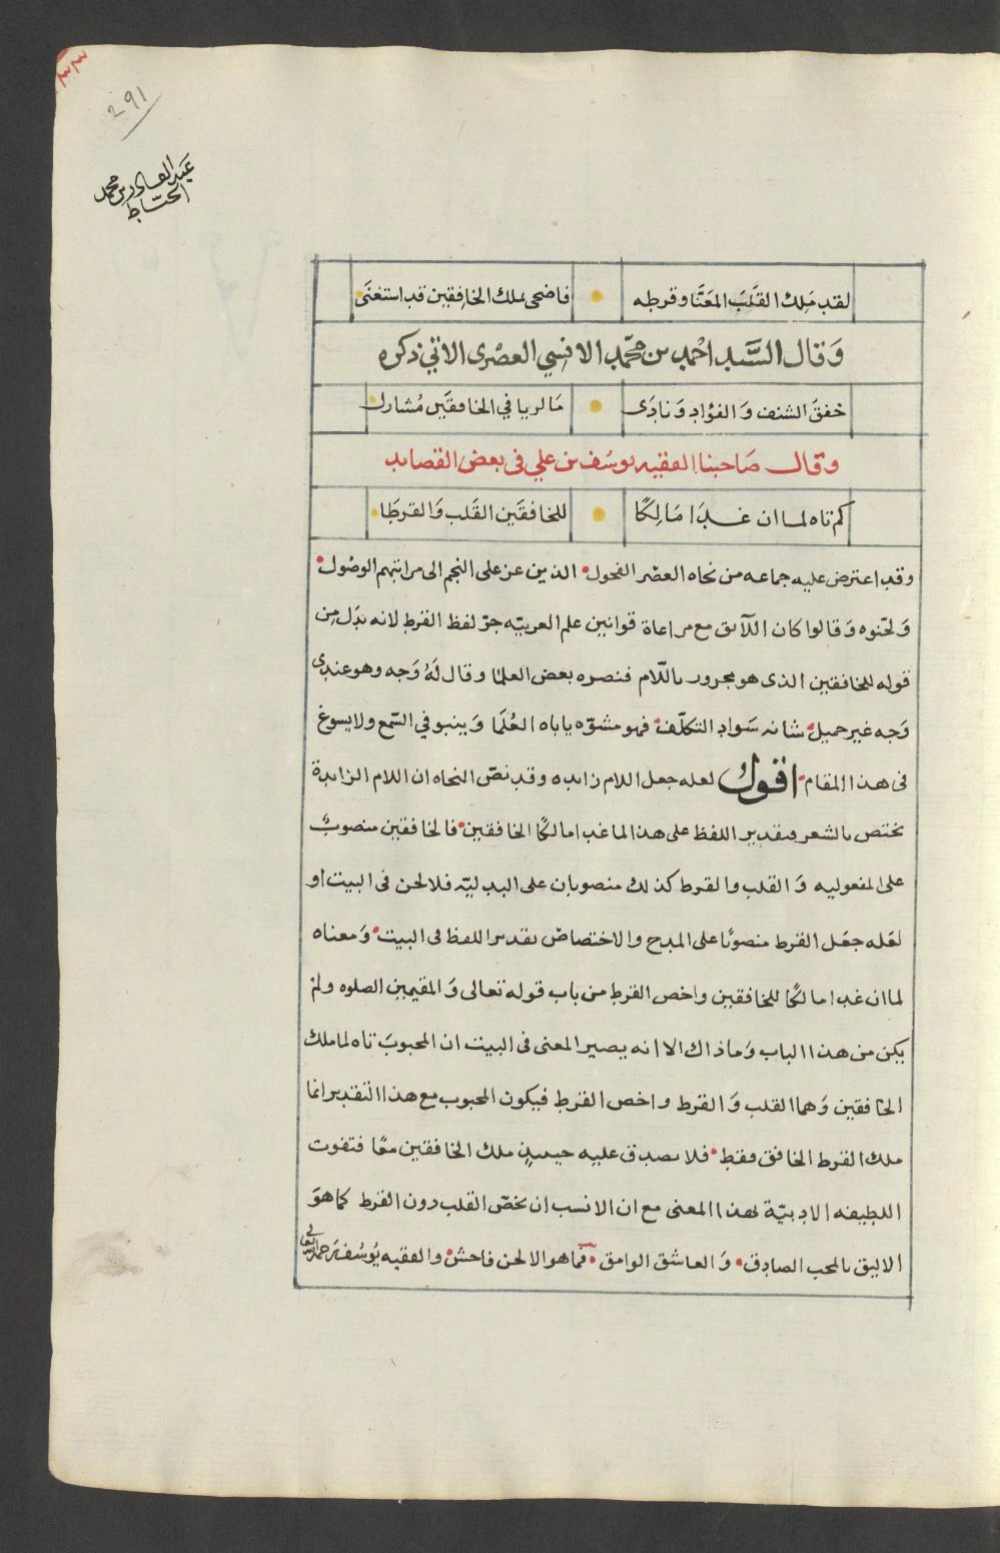 291
عبد القادر بن محمد
الحتاط
لقد مَلِك القَلَبَ المعَنَّا وقرطه فاضحى ملك الخافِقين قد استغنَى
وَقال السَّيد احْمد بن محمّد الانسي العصْرى الاتي ذكره
خفقَ الشنف وَالفؤاد وَنادَى مَا لريا في الخافقَين مُشارك
وقال صَاحبنا الفقيه يوسُف بن علي فى بعض القصايد
كم تاه لما ان غَدَا مَالِكًا للخافقَين القَلب وَالقرطَا
وقد اعترض عليه جماعه من نحاه العصْر الفحول الذين عز على النجم الى مراتبهم الوصُول
وَلحّنوه وَقالوا كان اللآئق مع مراعاة قوانين علم العربيّه جرّ لفظ القرط لانه بدَل من
قوله للخافقين الذى هو مجرور باللّام فنصره بعض العلمَا وقال لَهُ وَجه وهو عندى
وَجه غير جميل شانه سَواد التكلّف فهو مشوّه ياباه العُلَمَا وَينبو في السّمع ولا يسوغ
فى هذا المقام اقول لعله جعل اللام زايده وقد نصّ النحاه ان اللام الزايدة
تختص بالشعر وبتقدير اللفظ على هذا لما غدا مالكًا الخافقين فالخافقين منصوبٌ
على المفعوليه وَالقلب والقرط كذلك منصوبان على البدليّه فلا لحن فى البيت او
لعَله جعَل القرط منصوبًا على المدح والاختصاصْ بتقدير اللفظ فى البيت وَمعناه
لما ان غدا مالكًا للخافقين واخص القرط من باب قوله تعالى وَالمقيمين الصلوه ولمْ
يكن من هذا الباب وَما ذاك الا انه يصير المعنى فى البيت ان المحبوبَ تاه لما ملك
الخافقين وَهما القلب وَالقرط واخص القرط فيكون المحبوب مع هذا التقدير انما
ملك القرط الخافق فقط فلا يصدق عليه حينيذٍ ملك الخافقين معًا فتفوت
اللطيفه الادبيّة لهذا المعنى مع ان الانسب ان يخصّ القلب دون القرط كما هوَ
الاليق بالمحب الصادق وَالعاشق الوامق فما هو الا لحن فاحش والفقيه يُوسُف رَحمه الله تعالى